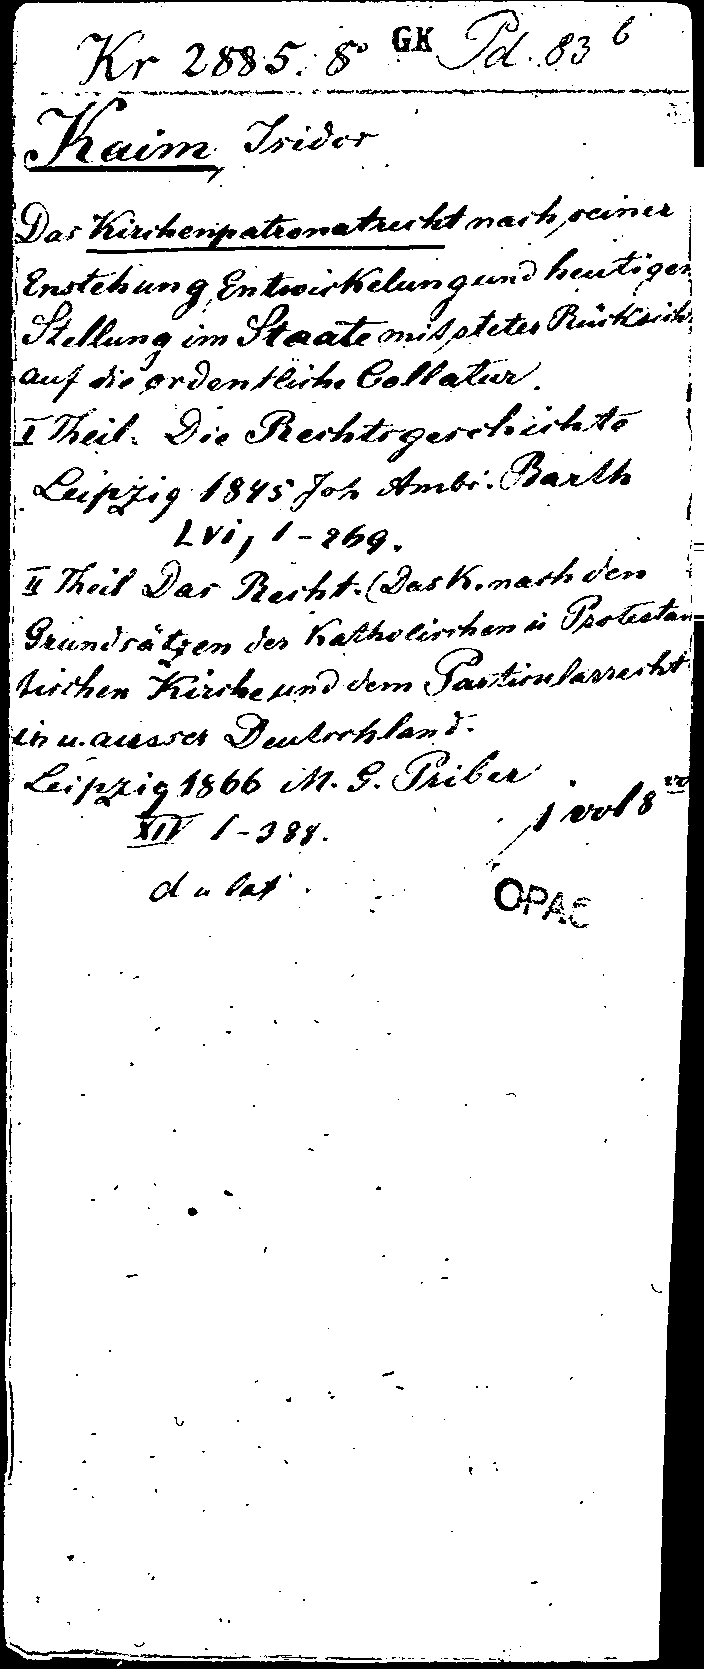 Kr 2885. 8° GK Pd. 83 6
Kaim, Isidor
Das Kirchenpatronatrecht nach seiner
Enstehung, Entwickelung und heutigen
Stellung im Staate mit steter Rücksich
auf die ordentliche Collatur.
I Theil. Die Rechtsgeschichte
Leipzig 1845 Joh Ambr. Barth
LVI, 1-269.
II Theil Das Recht. (Das K. nach den
Grundsätzen der Katholischen u Protestan
tischen Kirche und dem Particularrecht
in u. ausser Deutschland.
Leipzig 1866 M. G. Priber
XIV 1-388.
1 vol 8vo
d u lat
OPAC